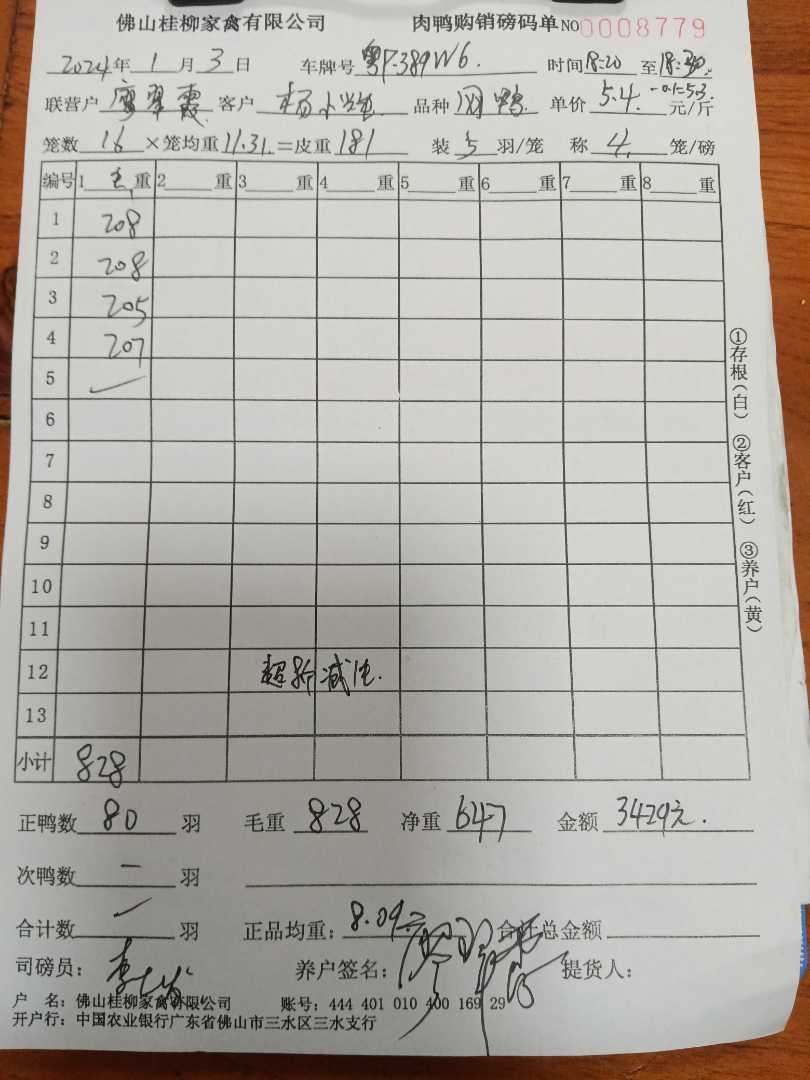 佛山桂柳家禽有限公司 肉鸭购销磅码单 NO 0008779
2024年 1月 3日 车牌号 粤F·389W6. 时间 18:20 至 18:30
联营户 廖翠霞 客户 杨小 品种 鸭 单价 5.4. -0.1=5.3 元/斤
笼数 16 ×笼均重 11.31 =皮重 181 装 5 羽/笼 称 4. 笼/磅
编号 1 毛 重 2 重 3 重 4 重 5 重 6 重 7 重 8 重
1 208
2 208
3 205
4 207
5
6
7
8
9
10
11
12 减
13
小计 828
①存根(白) ②客户(红) ③养户(黄)
正鸭数 80 羽 毛重 828 净重 647 金额 3429元.
次鸭数 一 羽
合计数 羽 正品均重: 8.09 合计总金额
司磅员: 李 养户签名: 廖翠霞 提货人:
户 名: 佛山桂柳家禽有限公司 账号: 444 401 010 400 169 29
开户行: 中国农业银行广东省佛山市三水区三水支行